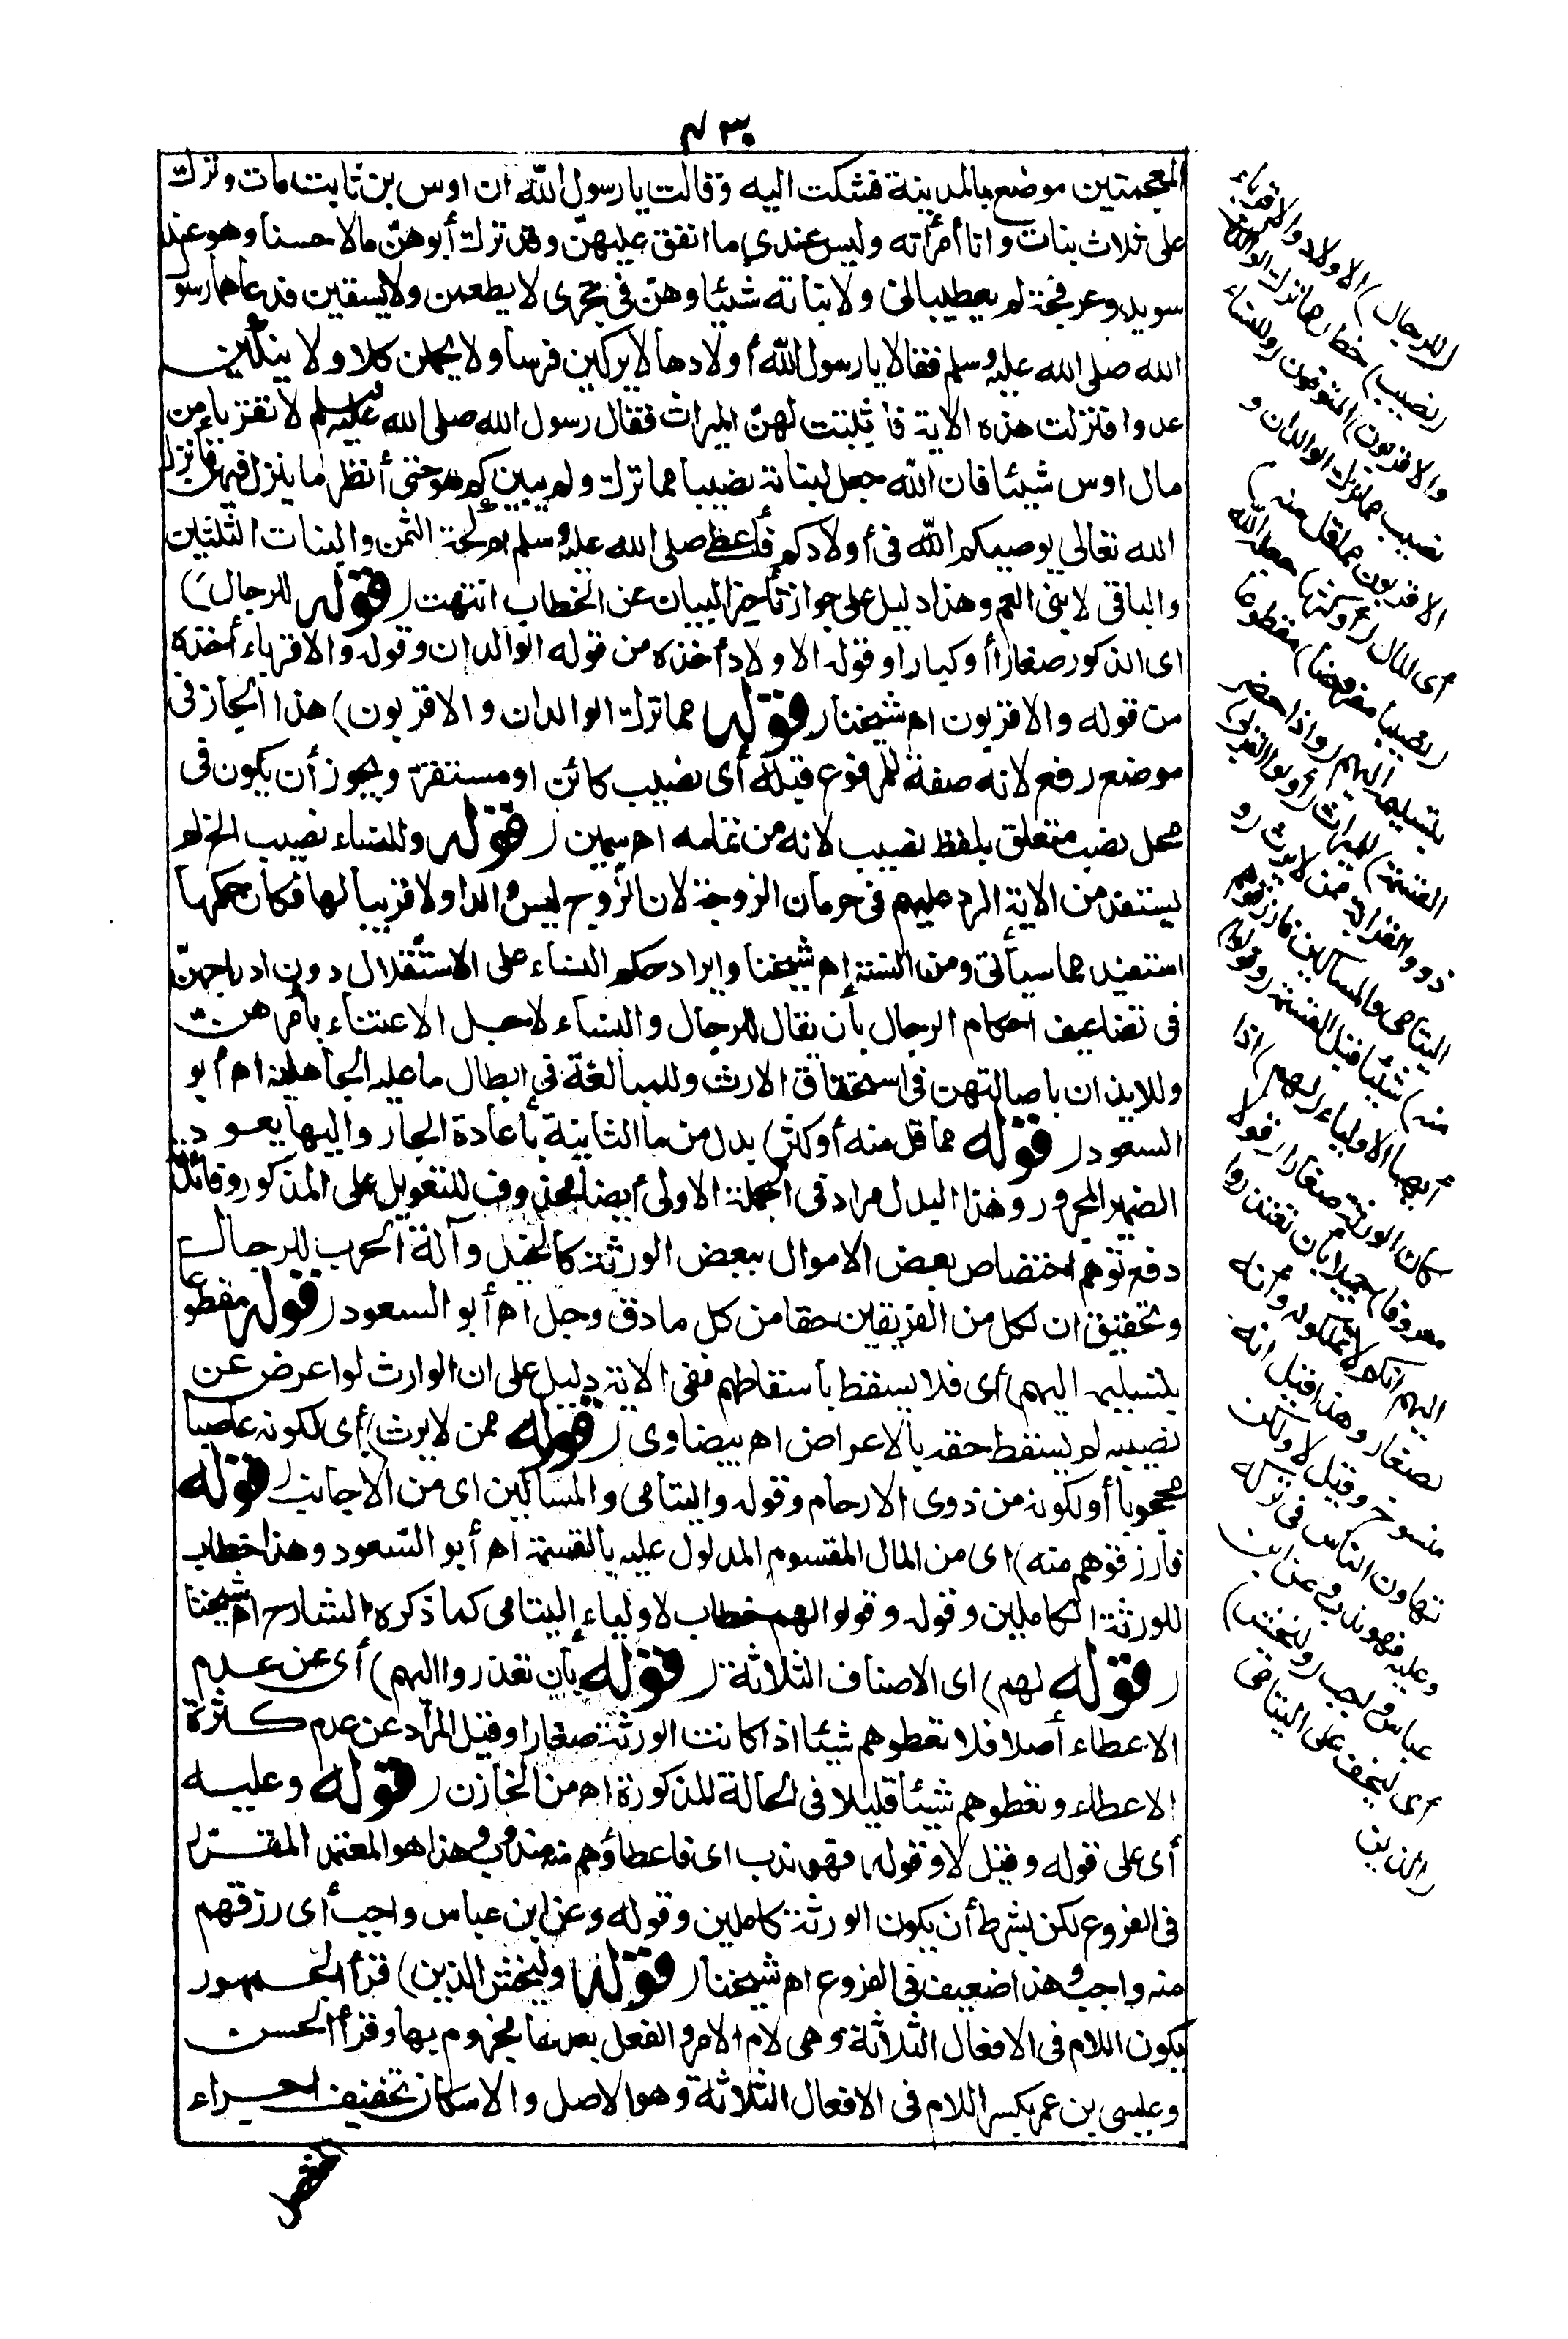 المعجمتين موضع بالمدينة فشكت اليه وقالت يا رسول الله ان اوس بن ثابت مات وترك
على ثلاث بنات وانا أمرأته وليس عندي ما انفق عليهنّ وقد ترك أبوهنّ مالا حسنا وهو عند
سويد وعرفجة لم يعطياني ولا بناته شيئا وهنّ في حجرى لا يطعمن ولا يسقين فدعاهما رسو
الله صلى الله عليه وسلم فقالا يا رسول الله أولادها لا يركبن فرسا ولا يحملن كلا ولا ينكين
عدوا فنزلت هذه الاية فاثبتت لهنّ الميراث فقال رسول الله صلى الله عليه وسلم لا تقربا من
مال اوس شيئا فان الله جعل لبناته نصيبا مما ترك ولم يبين كم هو حتى أنظر ما ينزل فيهنّ فأنزل
الله تعالى يوصيكم الله في أولادكم فأعطى صلى الله عليه وسلم ام كحة الثمن والبنات الثلثين
والباقى لابنى العم وهذا دليل على جواز تأخير البيان عن الخطاب انتهت (قوله للرجال)
اى الذكور صغارا أو كبارا وقوله الاولاد أخذه من قوله الوالدان وقوله والاقرباء أخذه
من قوله والاقربون اه شيخنا (قوله مما ترك الوالدان والاقربون) هذا الجار فى
موضع رفع لانه صفة للمرفوع قبله أى نصيب كائن او مستقرّ ويجوز أن يكون فى
محل نصب متعلق بلفظ نصيب لانه من تمامه اه سمين (قوله وللنساء نصيب الخ) لم
يستفد من الاية الرد عليهم فى حرمان الزوجة لان الزوج ليس والدا ولا قريبا لها فكان حكمها
استفيد مما سيأتى ومن السنة اه شيخنا وايراد حكم النساء على الاستقلال دون ادراجهنّ
فى تضاعيف احكام الرجال بأن يقال للرجال والنساء لاجل الاعتناء بأمرهنّ
وللايذان باصالتهن فى استحقاق الارث وللمبالغة فى ابطال ما عليه الجاهلية اه أبو
السعود (قوله مما قل منه أو كثر) بدل من ما الثانية باعادة الجار واليها يعود
الضمير المجرور وهذا البدل مراد فى الجملة الاولى أيضا محذوف للتعويل على المذكور وفائدته
دفع توهم اختصاص بعض الاموال ببعض الورثة كالخيل وآلة الحرب للرجال
وتحقيق ان لكل من الفريقين حقا من كل ما دق وجل اه أبو السعود (قوله مقطوعا
بتسليمه اليهم) أى فلا يسقط باسقاطهم ففى الاية دليل على ان الوارث لو اعرض عن
نصيبه لم يسقط حقه بالاعراض اه بيضاوى (قوله ممن لا يرث) أى لكونه عاصبا
محجوبا أو لكونه من ذوى الارحام وقوله واليتامى والمساكين اى من الاجانب (قوله
فارزقوهم منه) اى من المال المقسوم المدلول عليه بالقسمة اه أبو السعود وهذا خطاب
للورثة الكاملين وقوله وقولوا لهم خطاب لاولياء اليتامى كما ذكره الشارح اه شيخنا
(قوله لهم) اى الاصناف الثلاثة (قوله بأن تعتذروا اليهم) أى عن عدم
الاعطاء أصلا فلا تعطوهم شيئا اذا كانت الورثة صغارا وقيل المراد عن عدم كثرة
الاعطاء وتعطوهم شيئا قليلا فى الحالة المذكورة اه من الخازن (قوله وعليه
أى على قوله وقيل لا وقوله فهو ندب اى فاعطاؤهم منه مندوب وهذا هو المعتمد المقرّر
فى الفروع لكن بشرط أن يكون الورثة كاملين وقوله وعن ابن عباس واجب أى رزقهم
منه واجب وهذا ضعيف فى الفروع اه شيخنا (قوله وليخش الذين) قرأ الجمهور
بسكون اللام فى الافعال الثلاثة وهى لام الامر والفعل بعدها مجزوم بها وقرأ الحسن
وعيسى بن عمر بكسر اللام فى الافعال الثلاثة وهو الاصل والاسكان تخفيف اجراء
(للرجال) الاولاد والاقرباء
(نصيب) حظ (مما ترك الوالدان
والاقربون) المتوفون (وللنساء
نصيب مما ترك الوالدان و
الاقربون مما قل منه)
أى المال (أو كثر) جعله الله
(نصيبا مفروضا) مقطوعا
بتسليمه اليهم (واذا حضر
القسمة) للميراث (أولوا القربى)
ذوو القرابة ممن لا يرث (و
اليتامى والمساكين فارزقوهم
منه) شيئا قبل القسمة (وقولوا)
أيها الاولياء (لهم) اذا
كان الورثة صغارا (قولا
معروفا) جميلا بأن تعتذروا
اليهم أنكم لا تملكونه وأنه
لصغار وهذا قيل انه
منسوخ وقيل لا ولكن
تهاون الناس فى تركه
وعليه فهو ندب وعن ابن
عباس واجب (وليخش)
أى ليخف على اليتامى
(الذين